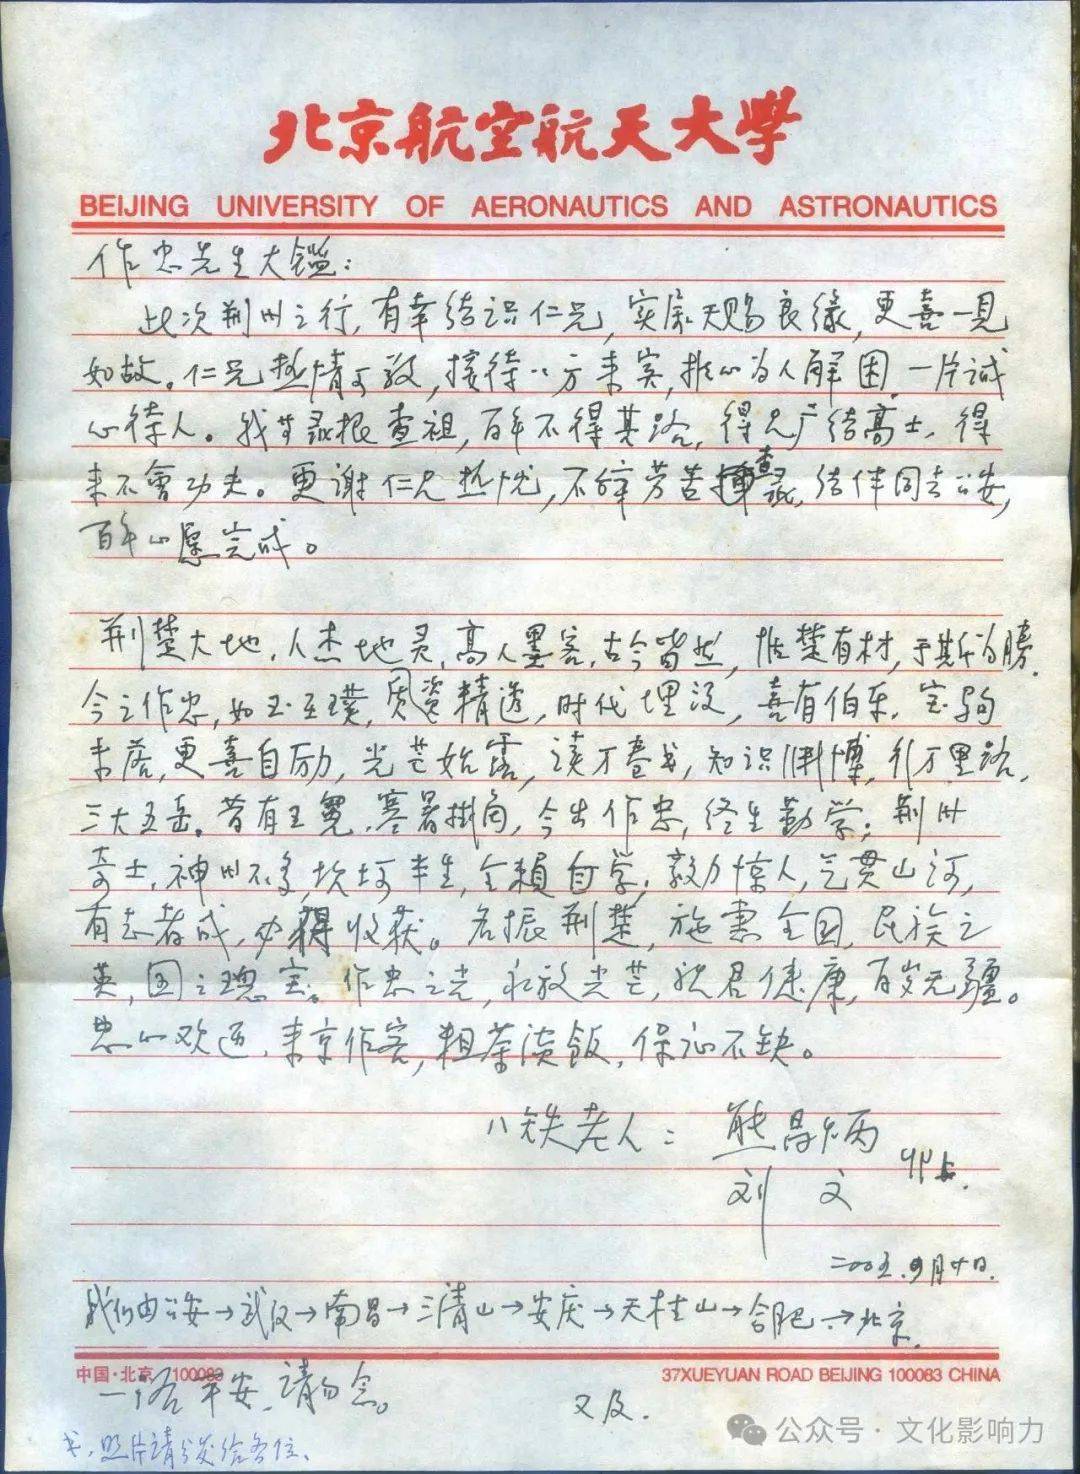 北京航空航天大学
BEIJING UNIVERSITY OF AERONAUTICS AND ASTRONAUTICS
作忠先生大鑑：
此次荆州之行，有幸结识仁兄，实属天赐良缘，更喜一見
如故。仁兄热情可敬，接待八方来宾，推心为人解困，一片诚
心待人。我等寻根查祖，百年不得其路，得兄广结高士，得
来不曾功夫。更谢仁兄热忱，不辞劳苦查，结伴同去公安，
百年心愿完成。
荆楚大地，人杰地灵，高人墨客，古今皆然，惟楚有材，于斯为勝，
今之作忠，如玉在璞，质资精透，时代埋没，喜有伯乐，宝驹
未落，更喜自励，光芒始露，读万卷书，知识渊博，行万里路，
三大五岳。昔有王冕，寒暑掛角，今出作忠，终生勤学；荆州
奇士，神州不多，坎坷半生，全赖自学，毅力惊人，气贯山河，
有志者成，必得收获。名振荆楚，施惠全国，民族之
英，国之瑰宝。作忠之光，永放光芒，祝君健康，百岁无疆。
忠心欢迎，来京作客，粗茶淡飯，保证不缺。
八铁老人：熊昌炳
刘文
上.
二〇〇五.9月十日.
我们由公安→武汉→南昌→三清山→安庆→天柱山→合肥→北京.
中国·北京 100083 37XUEYUAN ROAD BEIJING 100083 CHINA
一路平安，请勿念。 又及.
照片请分发给各位、
公众号·文化影响力